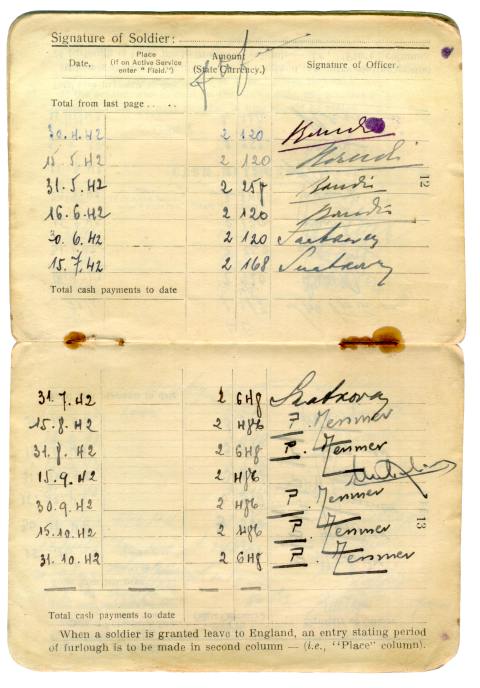 Signature of Soldier:
Date. Place (If on Active Service enter "Field.") Amount (State Currency.) Signature of Officer.
Total from last page . . . .
30.4.42 2 120
15.5.42 2 120
31.5.42 2
12
16.6.42 2 120
30.6.42 2 120
15.7.42 2 168
Total cash payments to date
31.7.42 2 648
15.8.42 2 486 P. Memmer
31.8.42 2 648 P. Memmer
15.9.42 2 486
30.9.42 2 486 P. Memmer
13
15.10.42 2 486 P. Memmer
31.10.42 2 648 P. Memmer
Total cash payments to date
When a soldier is granted leave to England, an entry stating period
of furlough is to be made in second column — (i.e., "Place" column).